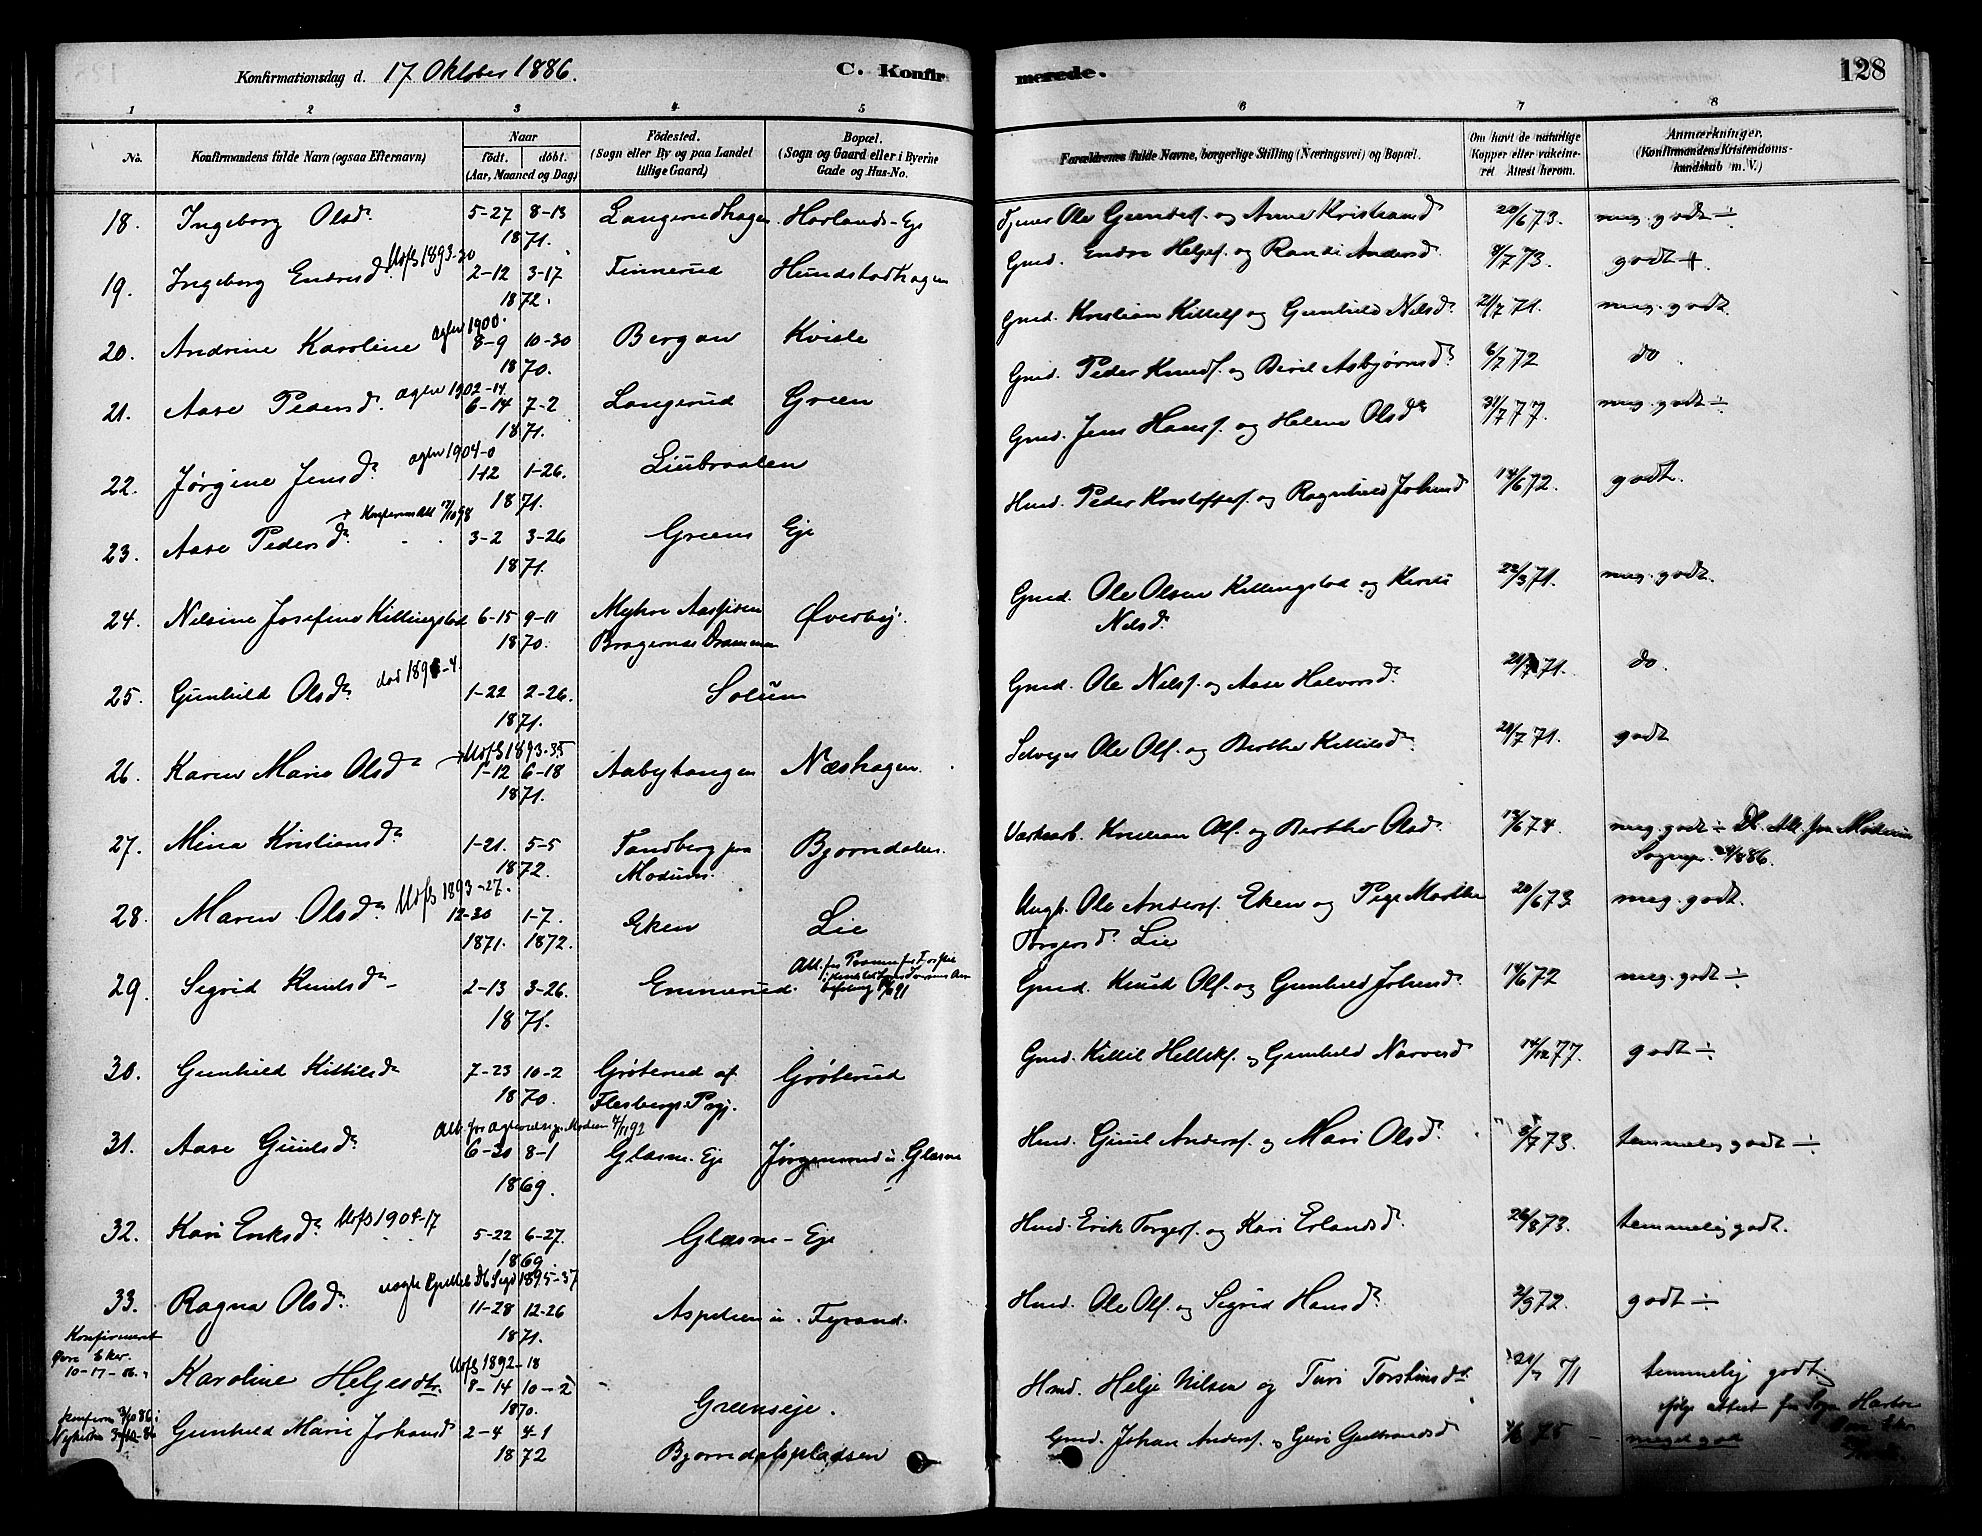 Konfirmationsdag d. 17 Oktober 1886. C. Konfirmerede. 128
1 2 3 4 5 6 7 8
No. Konfirmandens fulde Navn (ogsaa Efternavn) Naar født. døbt. (Aar, Maaned og Dag) Fødested. (Sogn eller By og paa Landet tillige Gaard) Bopæl. (Sogn og Gaard eller i Byerne Gade og Hus-No. Forældrenes fulde Navne, borgerlige Stilling (Næringsvei) og Bopæl. Om havt de naturlige Kopper eller vakcineret Attest herom. Anmærkninger. (Konfirmandens Kristendomskundskab m. V.)
18. Ingeborg Olsd. 5-27 8-13 1871. Langerudhagen Horlands-Eje Tjener Ole Gundersf. og Anne Kristiansd 20/6 73. meg. godt ÷
19. Ingeborg Endresd. Udfl 1893-20 2-12 3-17 1872. Finnerud Hundstadhagen Gmd. Endre Helgesf. og Randi Andersd 8/7 73. godt +.
20. Andrine Karoline agter 1900. 8-9 10-30 1870. Bergan Kvisle Gmd. Kristian Kittilsf og Gunhild Nilsd. 21/7 71. meg. godt.
21. Aase Pedersd. agter 1902-14. 6-14 7-2 1871. Langerud Green Gmd. Peder Knudsf. og Beret Asbjørnsd. 6/7 72 do.
22. Jørgine Jensd. agter 1904-0 1-12 1-26. 1871. Liubraaten Gmd. Jens Hansf. og Helene Olsd. 31/7 77. meg. godt ÷
23. Aase Pedersd. 3-2 3-26 1871. Greens Eje Hmd. Peder Kristoffersf. og Ragnhild Johansd 14/6 72. godt.
24. Nilsine Josefine Killingstad 6-15 9-11 1870. Myhre Aassiden Bragernæs Drammen Øverby. Gmd. Ole Olsen Killingstad og Kersti Nilsd. 22/3 71. meg. godt.
25. Gunhild Olsd. 1-22 2-26. 1871. Solum Gmd. Ole Nilsf. og Aase Halvorsd. 21/7 71. do.
26. Karen Marie Olsd. Udfl 1893-35 1-12 6-18 1871. Aabyhaugen Næshagen. Selvejer Ole Olsf. og Berthe Kittilsd. 21/7 71. godt
27. Mina Kristiansd. 1-21. 5-5 1872. Tandberg paa Modum. Bjørndalen. Værksarb. Kristian Olsf. og Berthe Olsd. 13/6 74. meg. godt ÷ Db. Att. fra Modum Sognepr. /8 86.
28. Maren Olsd. Udfl 1893-27. 12-30 1871. 1-7. 1872. Eken Lie Ungk. Ole Andersf. Eken og Pige Marthe Torgersd. Lie 20/6 73 meg. godt.
29. Sigrid Knudsd. 2-13 3-26. 1871. Emmerud. Gmd. Knud Olsf. og Gunhild Johansd. 14/6 72 meg. godt ÷
30. Gunhild Kittilsd. 7-23 10-2 1870. Grøterud af Flesbergs Prgj. Grøterud Gmd. Kittil Helliksf. og Gunhild Narvesd 14/12 77. godt ÷
31. Aase Gunlsd. 6-30 8-1 1869. Glasne Eje Jørgensrud u. Glasne Hmd. Gunl Andersf. og Mari Olsd. 8/7 73. temmelig godt ÷
32. Kari Eriksd. Udfl 1904-17 5-22 6-27. 1869 Glasne-Eje Hmd. Erik Torgersf. og Kari Erlandsd. 26/8 73. temmelig godt.
33. Ragna Olsd. 1895-37 11-28 12-26 1871. Aspelien u. Fyrand. Hmd. Ole Olsf. og Sigrid Hansd. 3/9 72. godt ÷
Konfirmeret Øvre Eker. 10-17-86. Karoline Helgesdtr. Udfl 1892-18 8-14 10-2 1870. Greenseje. Hmd. Helje Nilsen og Turi Torstensdt. 21/7 71 temmelig godt ifølge attest fra Sogn. Øvre Eker
Gunhild Marie Johansd 2-4 4-1 1872 Bjørndalspladsen Gmd. Johan Andersf. og Guri Gulbrandsd 75 meget god